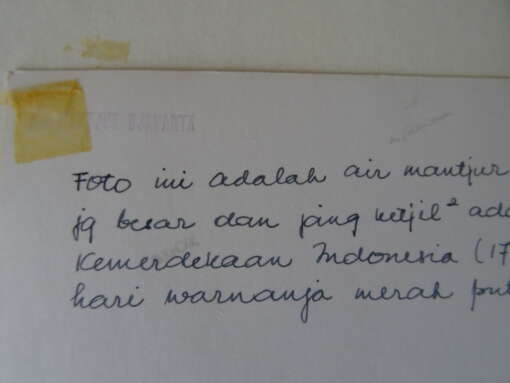 Foto ini adalah air mantjur
jg besar dan jang ketjil² ada
Kemerdekaan Indonesia (17
hari warnanja merah put